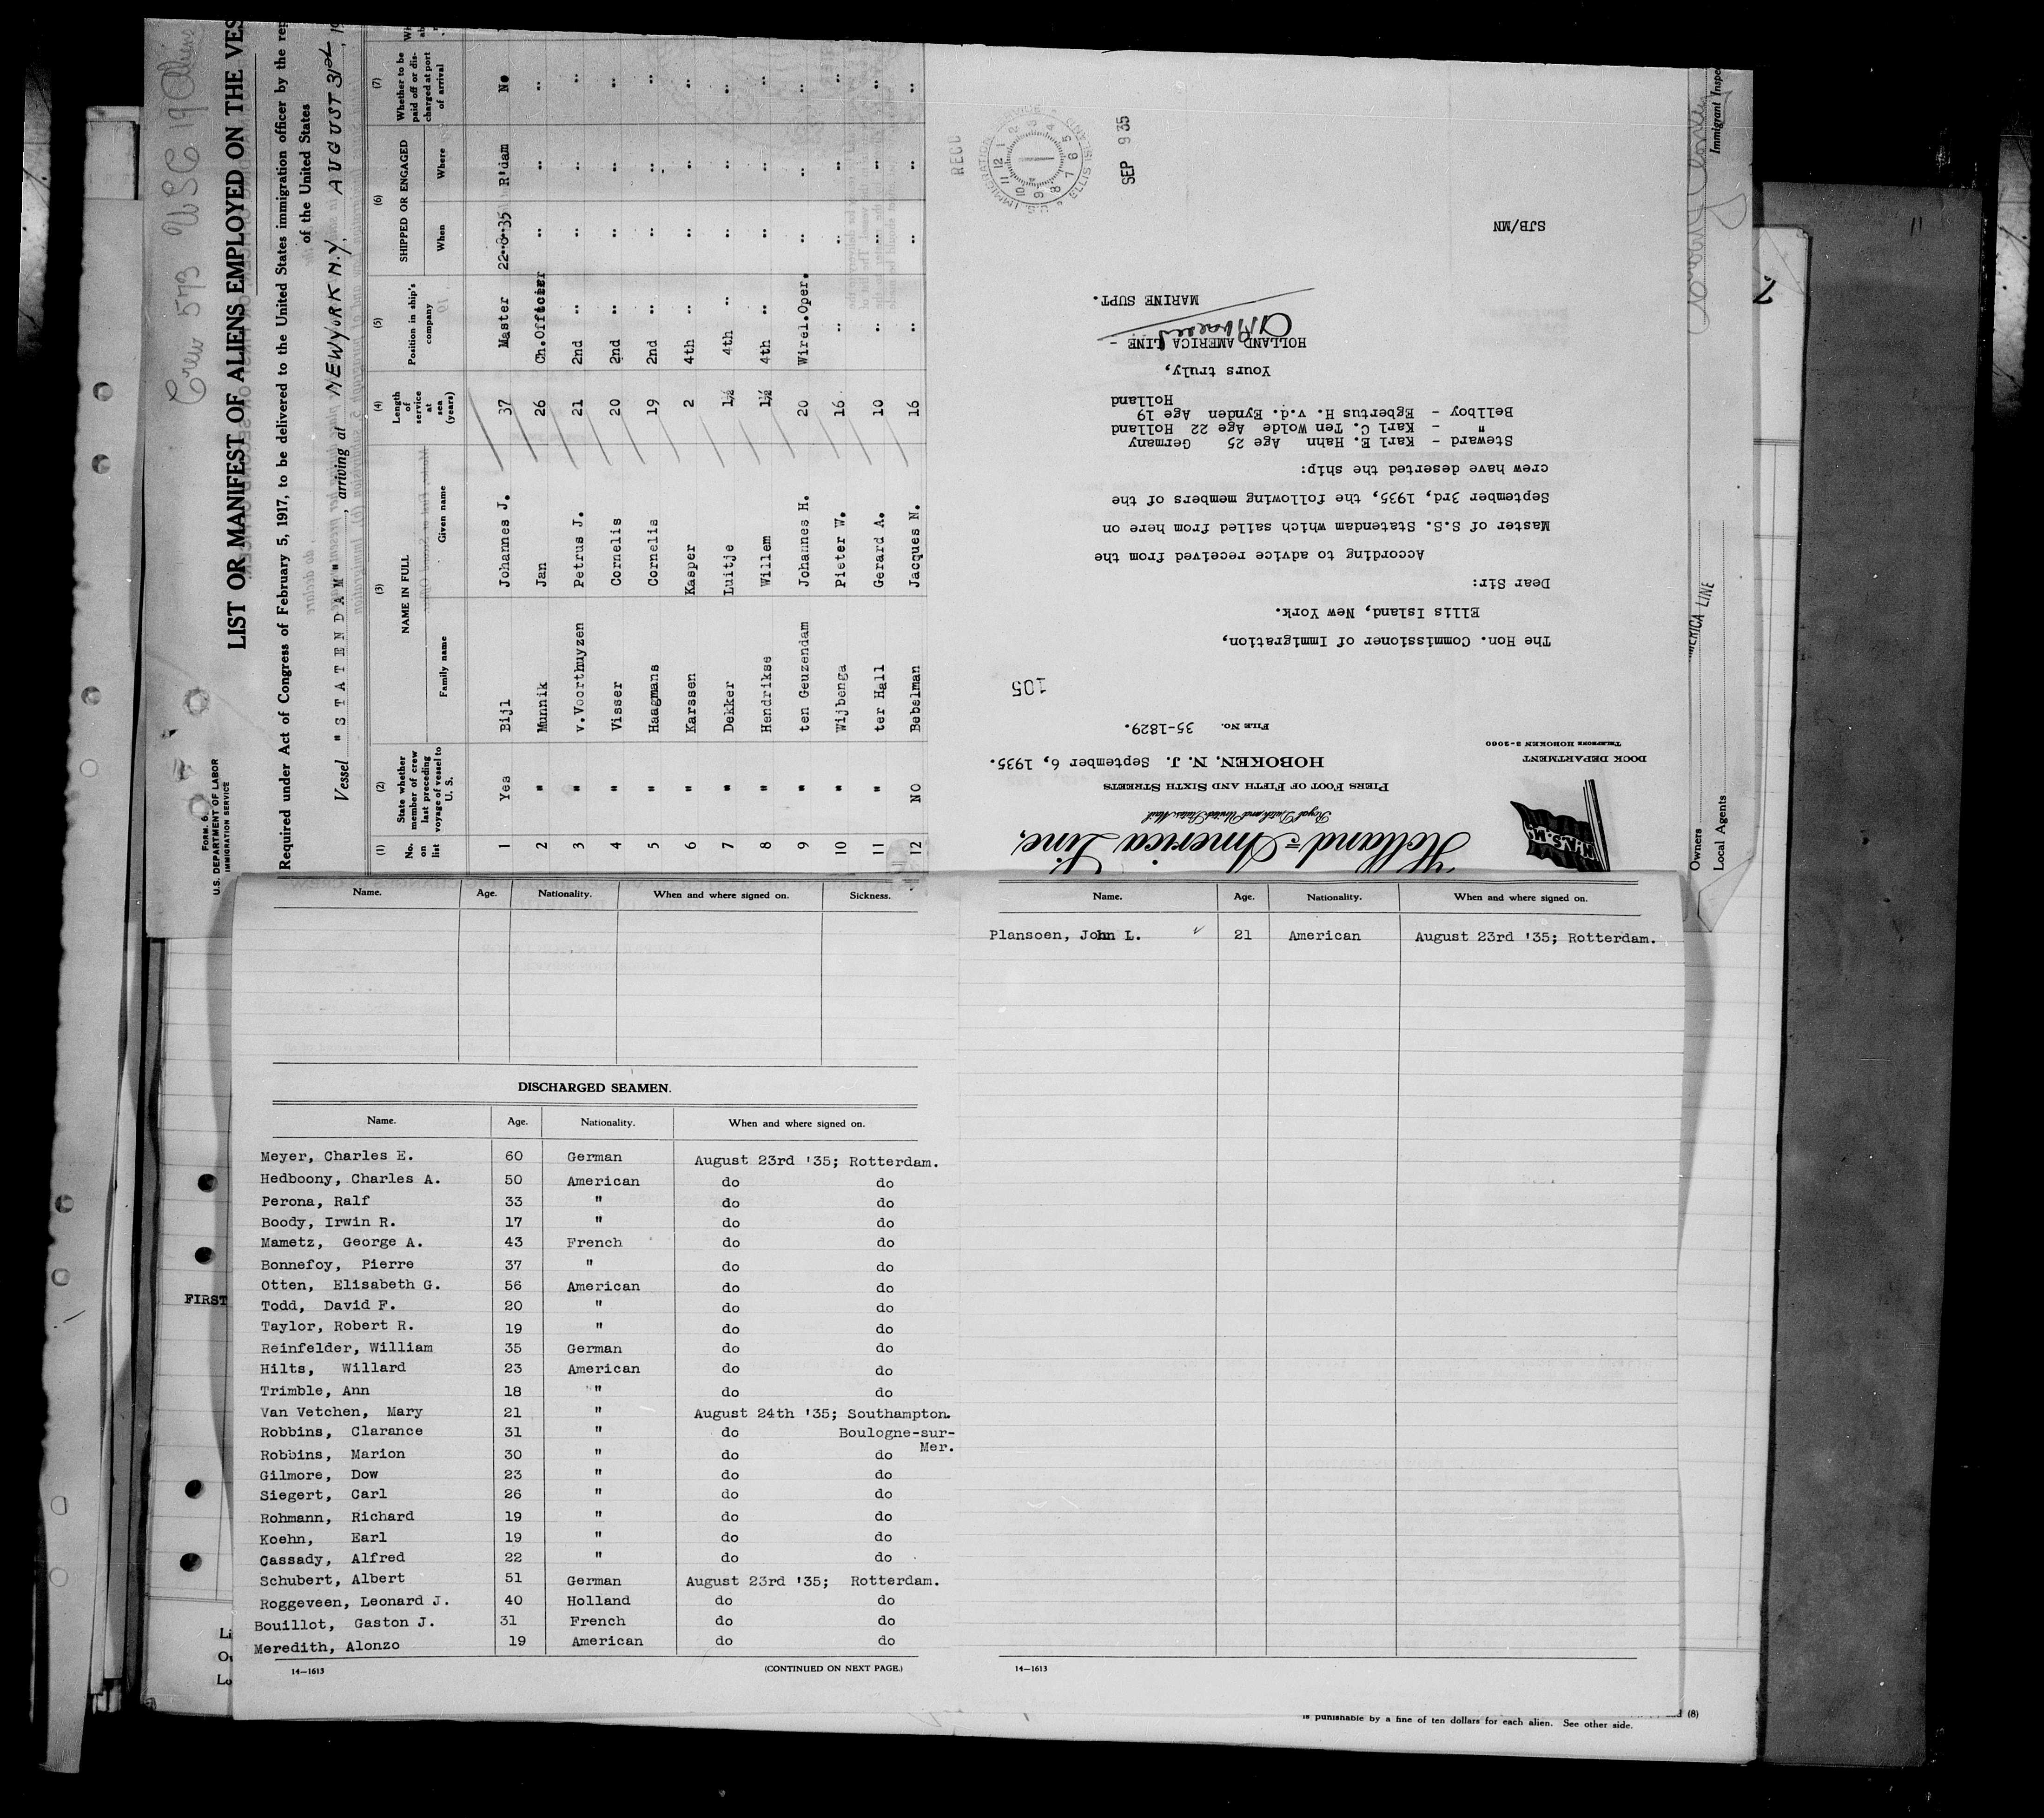 Crew 573 USC 19 Aliens
FORM 6
U.S. DEPARTMENT OF LABOR
IMMIGRATION SERVICE
LIST OR MANIFEST OF ALIENS EMPLOYED ON THE VES
Required under Act of Congress of February 5, 1917, to be delivered to the United States immigration officer by the rep
of the United States
Vessel "STATENDAM", arriving at NEWYORK N.Y., AUGUST 31st, 19
(1) (2) (3) (4) (5) (6) (7)
No. on list
State whether member of crew last preceding voyage of vessel to U. S.
NAME IN FULL
Family name Given name
Length of service at sea (years)
Position in ship's company
SHIPPED OR ENGAGED
When Where
Whether to be paid off or discharged at port of arrival
1 Yes Bijl Johannes J. 37 Master 22-8-35 R'dam No
2 " Munnik Jan 26 Ch.Officier " " "
3 " v.Voorthuyzen Petrus J. 21 2nd " " " "
4 " Visser Cornelis 20 2nd " " " "
5 " Haagmans Cornelis 19 2nd " " " "
6 " Karssen Kasper 2 4th " " " "
7 " Dekker Luitje 1½ 4th " " " "
8 " Hendrikse Willem 1½ 4th " " " "
9 " ten Geuzendam Johannes H. 20 Wirel.Oper. " " "
10 " Wijbenga Pieter W. 16 " " " "
11 " ter Hall Gerard A. 10 " " " "
12 NO Bebelman Jacques N. 16 " " " "
Holland=America Line,
Royal Dutch and United States Mail
N.A.S.M.
PIERS FOOT OF FIFTH AND SIXTH STREETS
DOCK DEPARTMENT
HOBOKEN, N. J. September 6, 1935.
TELEPHONE HOBOKEN 3-2060
FILE NO. 35-1829.
105
The Hon. Commissioner of Immigration,
Ellis Island, New York.
Dear Sir:
According to advice received from the
Master of S.S. Statendam which sailed from here on
September 3rd, 1935, the following members of the
crew have deserted the ship:
Steward - Karl E. Hahn Age 25 Germany
" - Karl C. Ten Wolde Age 22 Holland
Bellboy - Egbertus H. v.d. Eynden Age 19
Holland
Yours truly,
HOLLAND AMERICA LINE -
MARINE SUPT.
SJB/MN
RECD
U.S. IMMIGRATION ELLIS ISLAND
SEP 9 35
Immigrant Inspe
ERICA LINE
Owners
Local Agents
Name. Age. Nationality. When and where signed on. Sickness.
DISCHARGED SEAMEN.
Name. Age. Nationality. When and where signed on.
Meyer, Charles E. 60 German August 23rd '35; Rotterdam.
Hedboony, Charles A. 50 American do do
Perona, Ralf 33 " do do
Boody, Irwin R. 17 " do do
Mametz, George A. 43 French do do
Bonnefoy, Pierre 37 " do do
Otten, Elisabeth G. 56 American do do
Todd, David F. 20 " do do
Taylor, Robert R. 19 " do do
Reinfelder, William 35 German do do
Hilts, Willard 23 American do do
Trimble, Ann 18 " do do
Van Vetchen, Mary 21 " August 24th '35; Southampton.
Robbins, Clarance 31 " do Boulogne-sur-
Mer.
Robbins, Marion 30 " do do
Gilmore, Dow 23 " do do
Siegert, Carl 26 " do do
Rohmann, Richard 19 " do do
Koehn, Earl 19 " do do
Cassady, Alfred 22 " do do
Schubert, Albert 51 German August 23rd '35; Rotterdam.
Roggeveen, Leonard J. 40 Holland do do
Bouillot, Gaston J. 31 French do do
Meredith, Alonzo 19 American do do
14—1613 (CONTINUED ON NEXT PAGE.)
Name. Age. Nationality. When and where signed on.
Plansoen, John L. 21 American August 23rd '35; Rotterdam.
14—1613
FIRST
Li
Ow
Lo
is punishable by a fine of ten dollars for each alien. See other side.
(8)
11